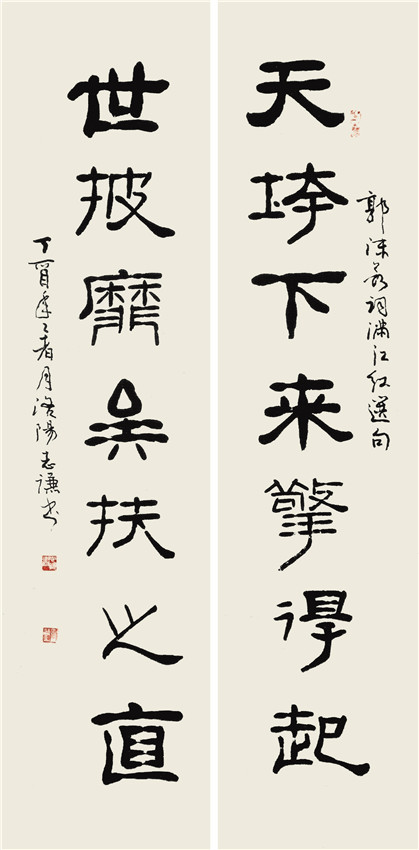 郭沫若词满江红選句
天垮下来擎得起
世披靡矣扶之直
丁酉年 月洛陽志谦书